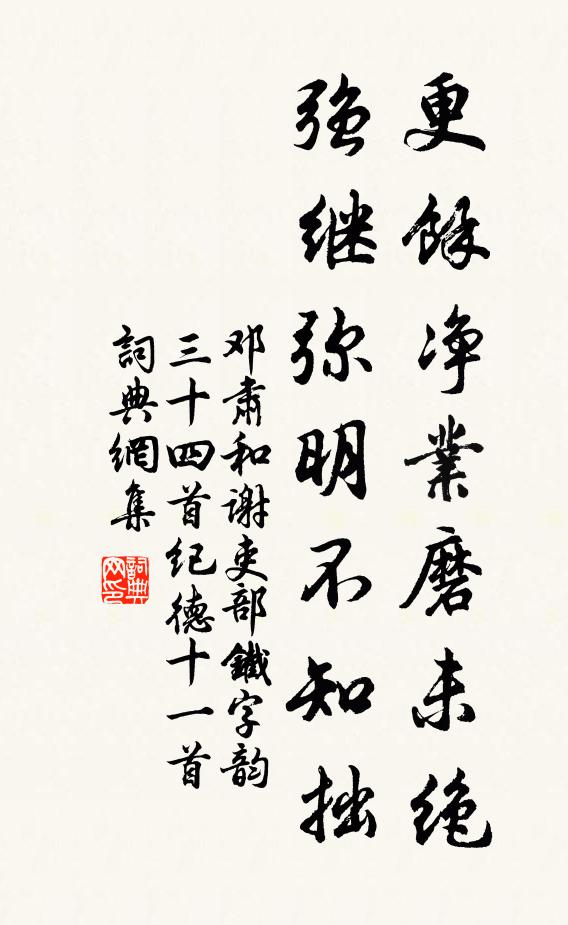 更餘净業磨未绝
強继弥明不知拙
邓肃和谢吏部鐵字韵
三十四首纪德十一首
詞典網集
詞典网印